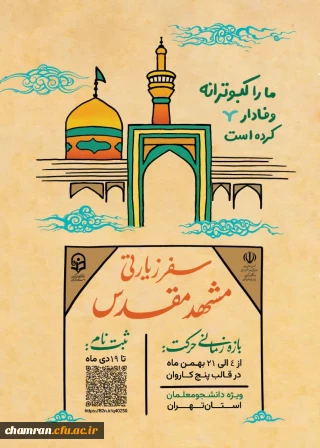 ما را کبوترانه
وفادار
کرده است
سفر زیارتی
مشهد مقدس
بازه زمانی حرکت:
از ۴ الی ۲۱ بهمن ماه
در قالب پنج کاروان
ویژه دانشجومعلمان
استان تهران
ثبت نام:
تا ۱۹ دی ماه
https://B2n.ir/q40250
chamran.cfu.ac.ir